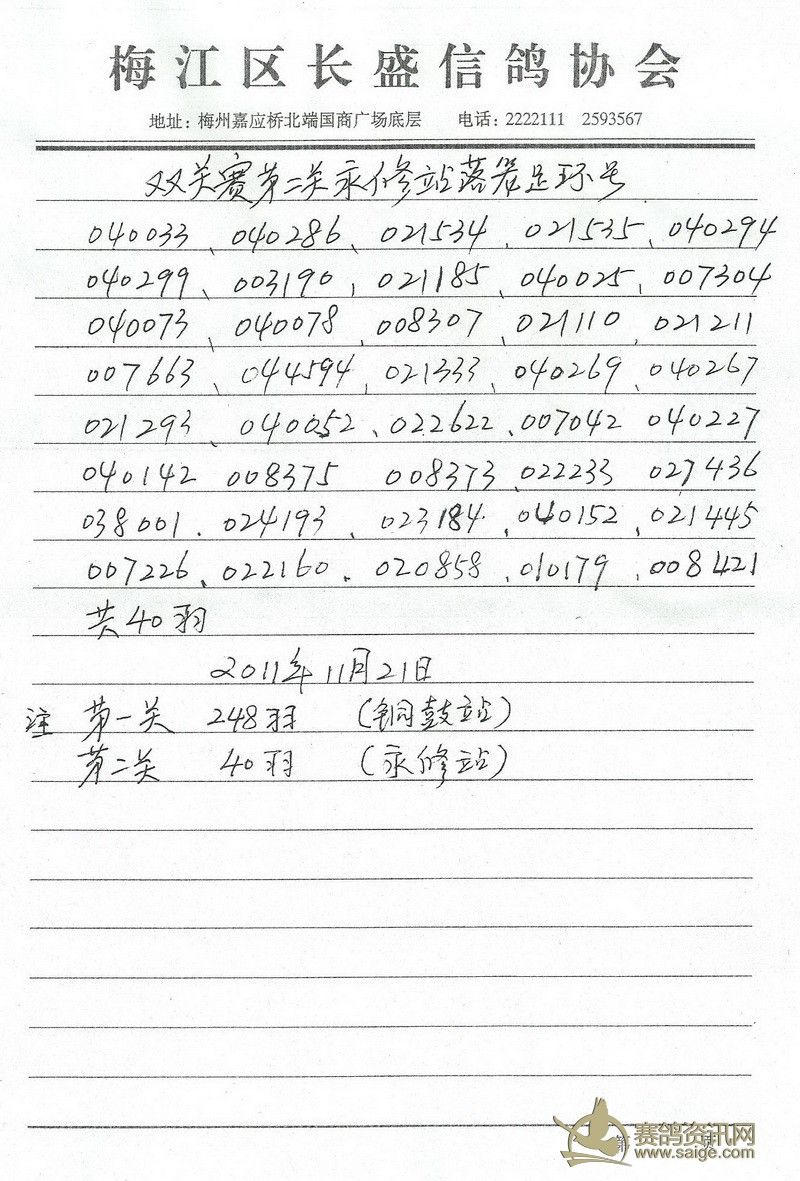 梅江区长盛信鸽协会
地址：梅州嘉应桥北端国商广场底层 电话：2222111 2593567
双关赛第二关永修站落笼足环号
040033、040286、021534、021535、040294
040299、003190、021185、040025、007304
040073、040078、008307、021110、021211
007663、044594、021333、040269、040267
021293、040052、022622、007042 040227
040142 008375 008373、022233 027436
038001、024193、023184、040152、021445
007226、022160、020858、010179、008421
共40羽
2011年11月21日
注 第一关 248羽 (铜鼓站)
第二关 40羽 (永修站)
第 页
赛鸽资讯网
www.saige.com